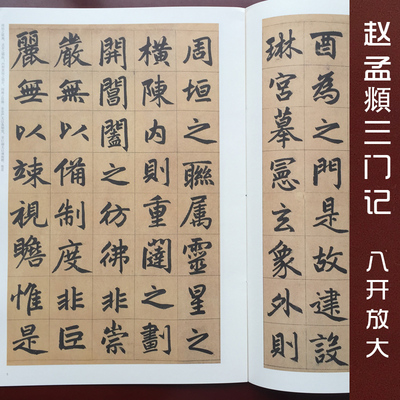 赵孟頫三门记
八开放大
酉為之門是故建設
琳宮摹憲玄象外則
周垣之聯属靈星之
橫陳内則重闥之劃
開閶闔之彷彿非崇
嚴無以備制度非巨
麗無以竦視瞻惟是